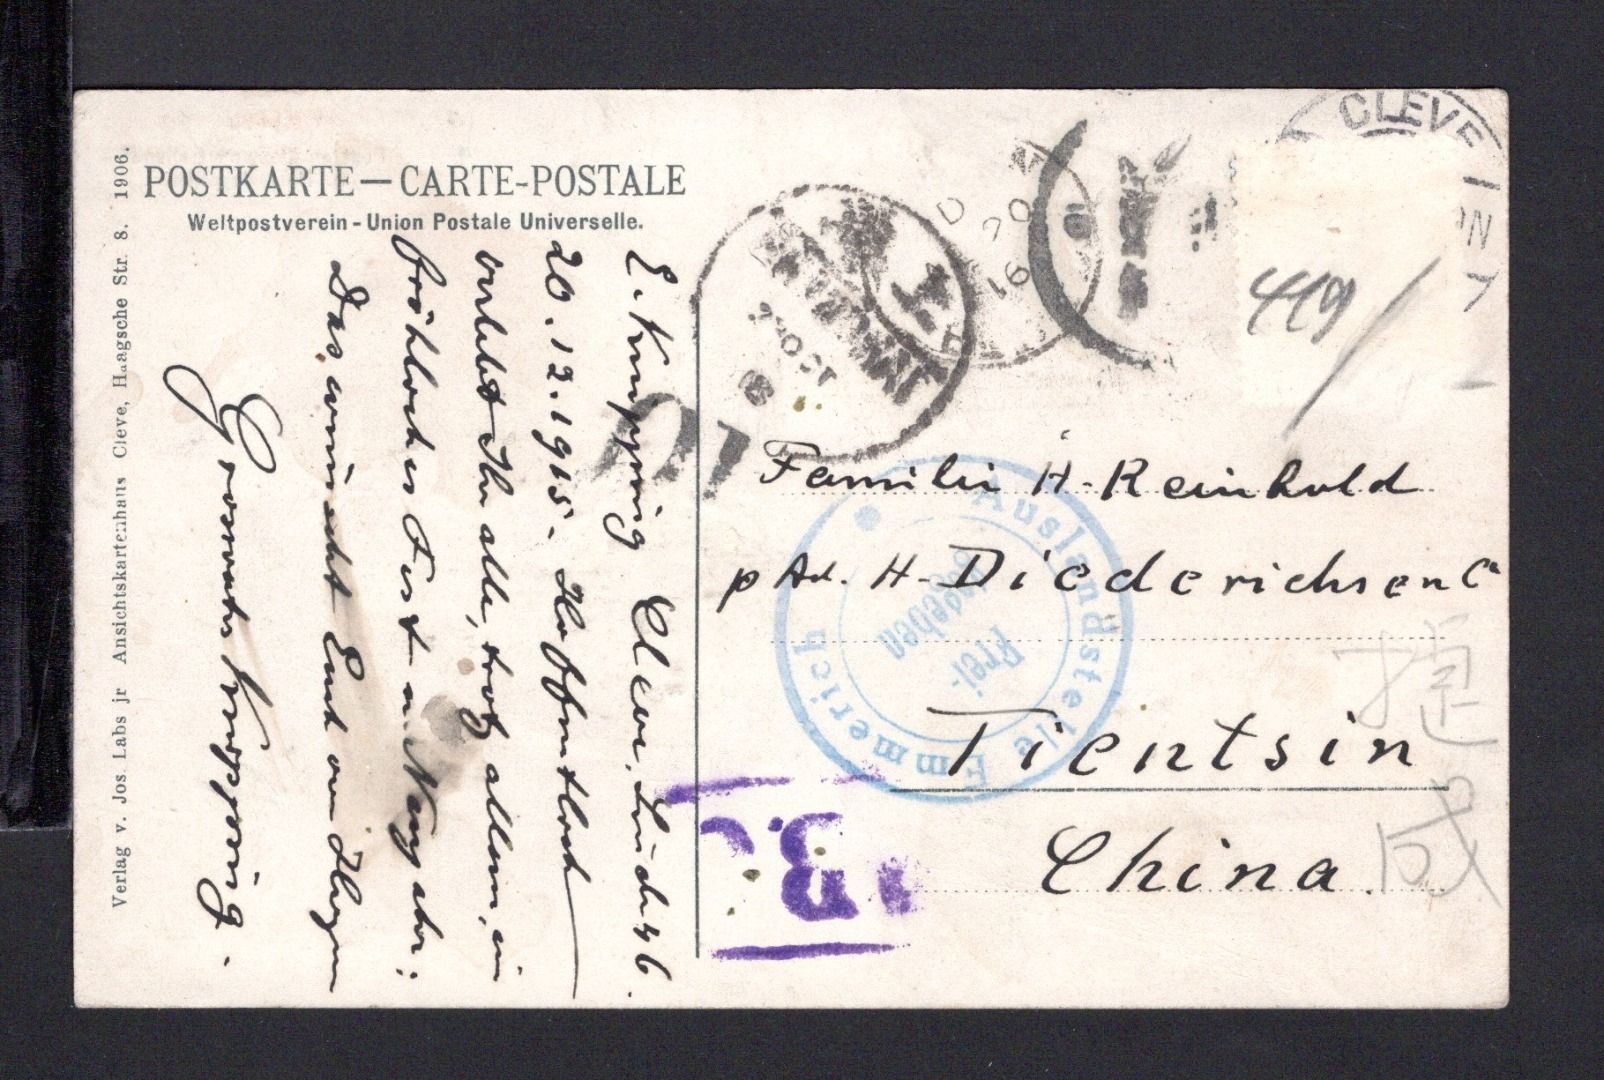 POSTKARTE — CARTE-POSTALE
Weltpostverein - Union Postale Universelle.
Verlag v. Jos. Labs jr Ansichtskartenhaus Cleve, Haagsche Str. 8. 1906.
E. Knipping Cleve,
20.12.1915. Hoffentlich
verlebt Ihr alle, trotz allem, ein
fröhliches Fest u. Neujahr:
Das wünscht Euch von Herzen
Knipping.
CLEVE
419
Familie H. Reinhold
p Ad. H. Diederichsen Co
Tientsin
China.
Auslandstelle Emmerich
Frei-
gegeben
捷
成